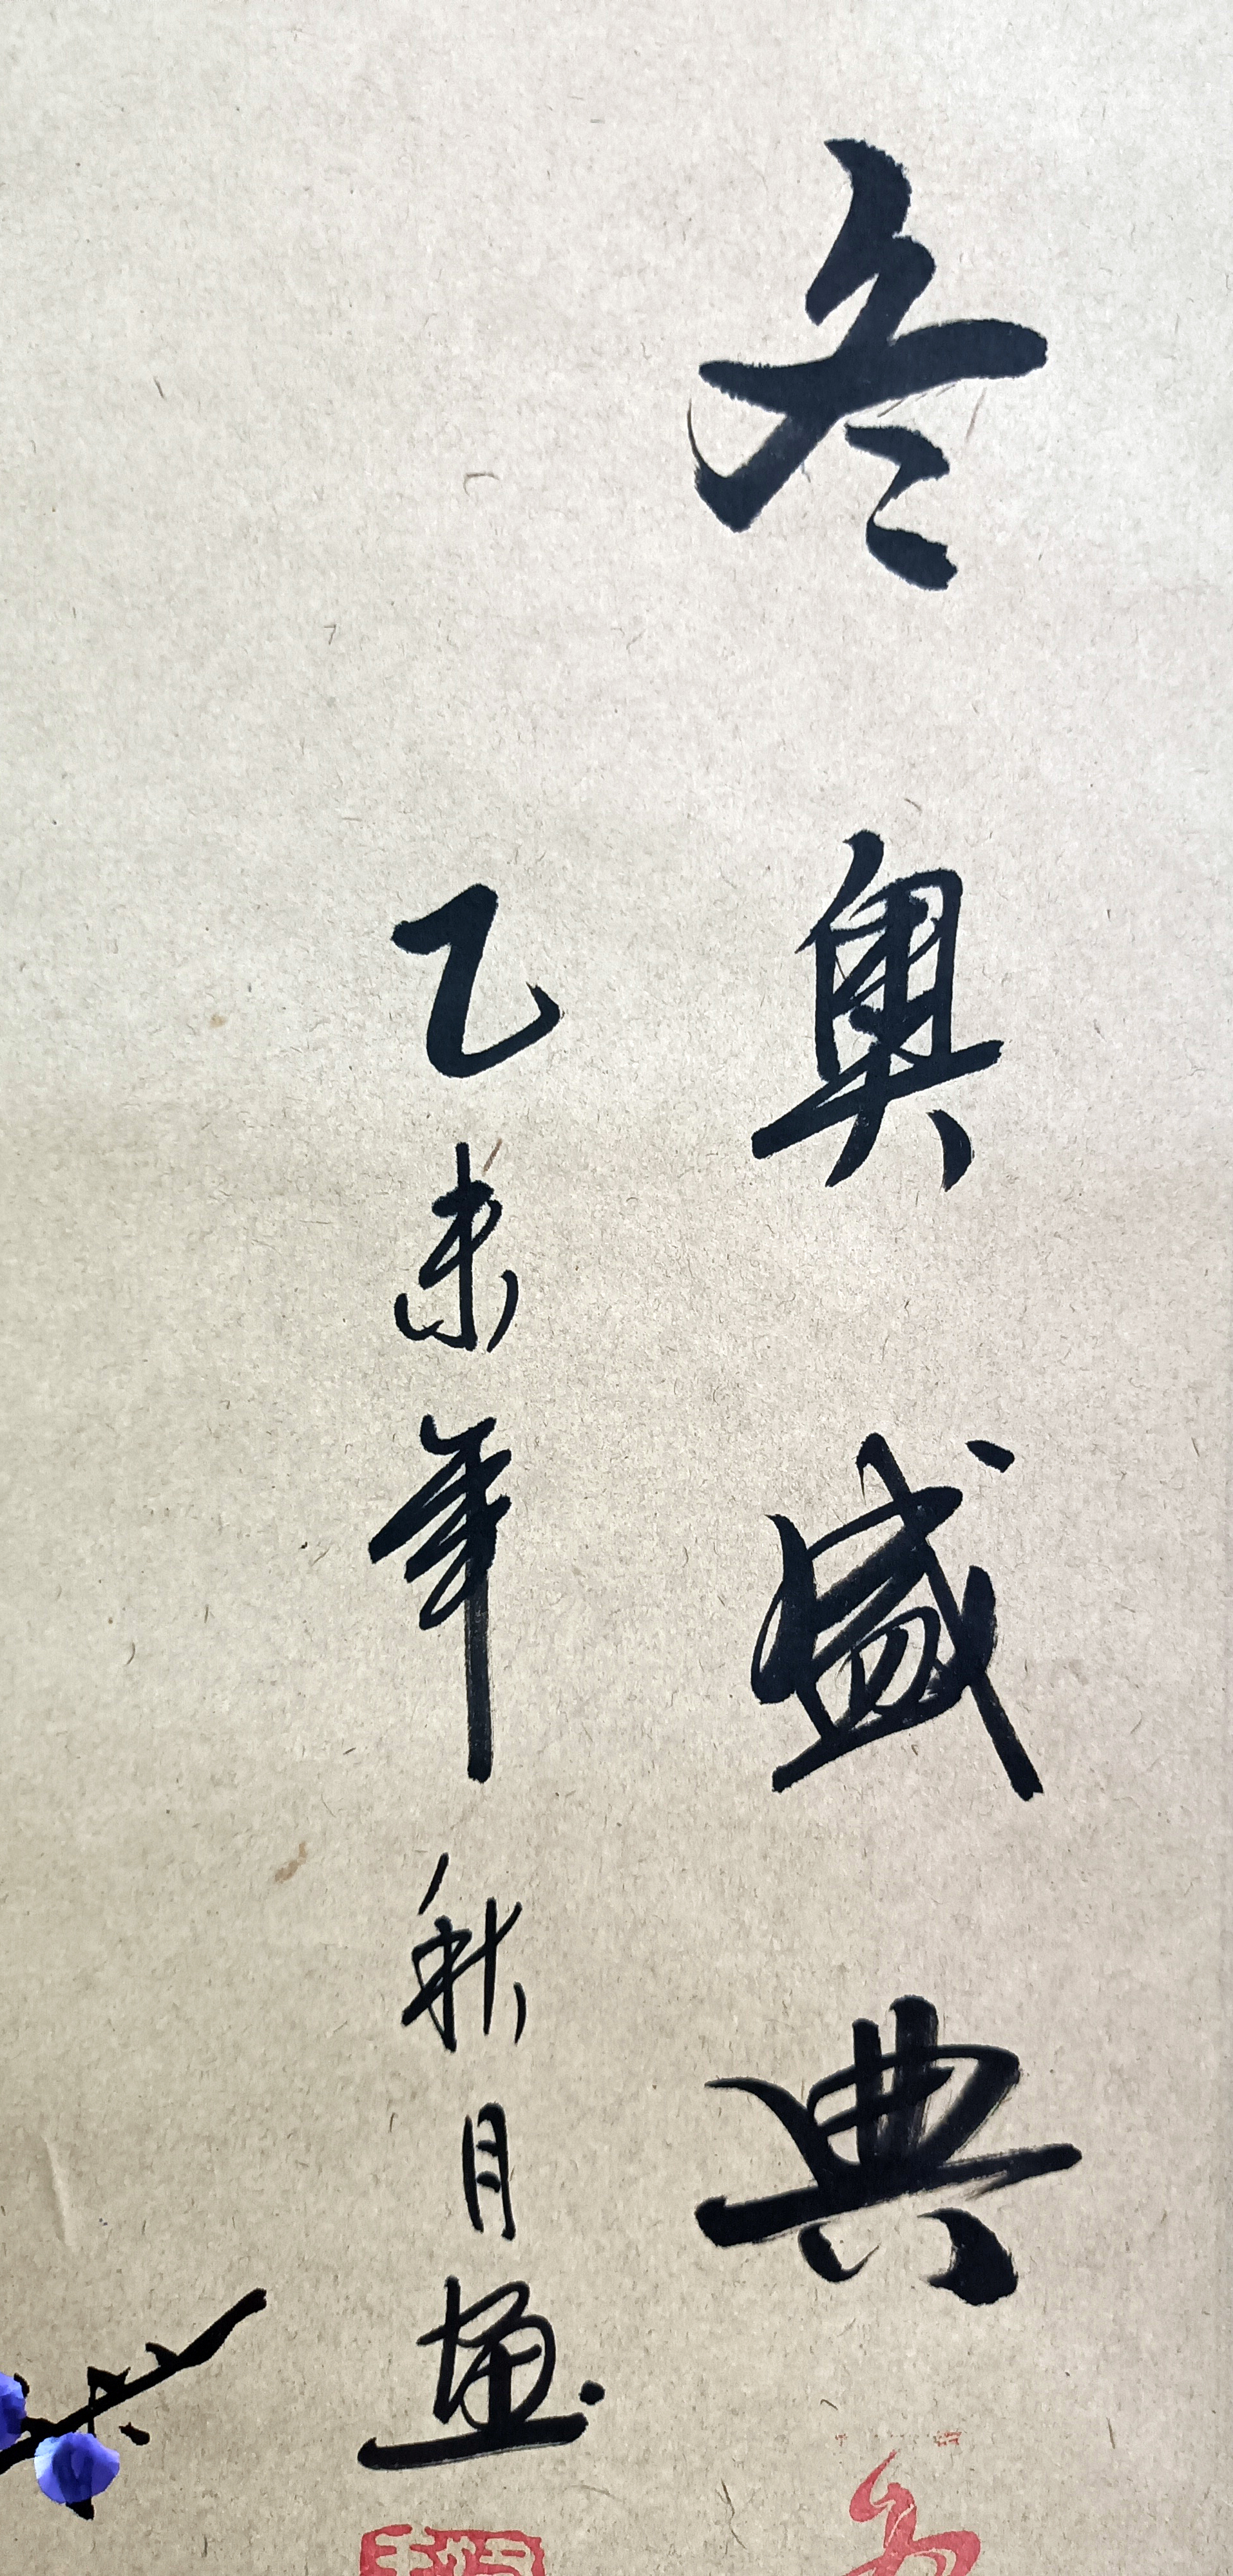 冬奥盛典
乙未年秋月画